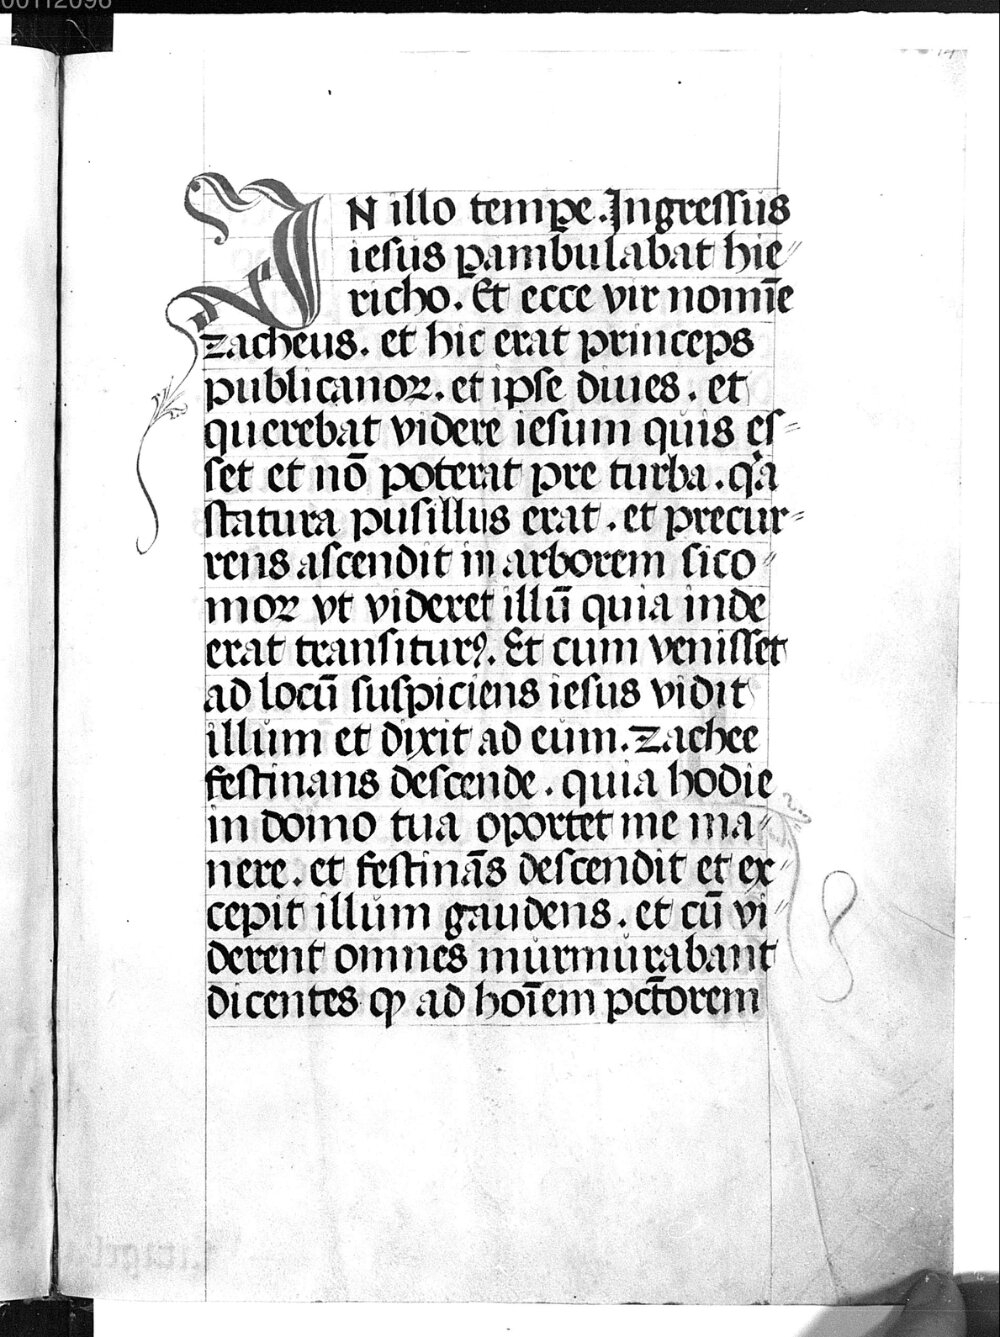 00112096
IN illo tempe. Ingressus
iesus ꝑambulabat hie⸗
richo. Et ecce vir nomīe
zacheus. et hic erat princeps
publicanoꝝ. et ipse diues. et
querebat videre iesum quis es⸗
set et nō poterat pre turba. qa
statura pusillus erat. et precur⸗
rens ascendit in arborem sico⸗
moꝝ vt videret illū quia inde
erat transiturꝰ. Et cum venisset
ad locū suspiciens iesus vidit
illum et dixit ad eum. zachee
festinans descende. quia hodie
in domo tua oportet me ma⸗
nere. et festinās descendit et ex⸗
cepit illum gaudens. et cū vi⸗
derent omnes murmurabant
dicentes ꝙ ad hoīem pctōrem